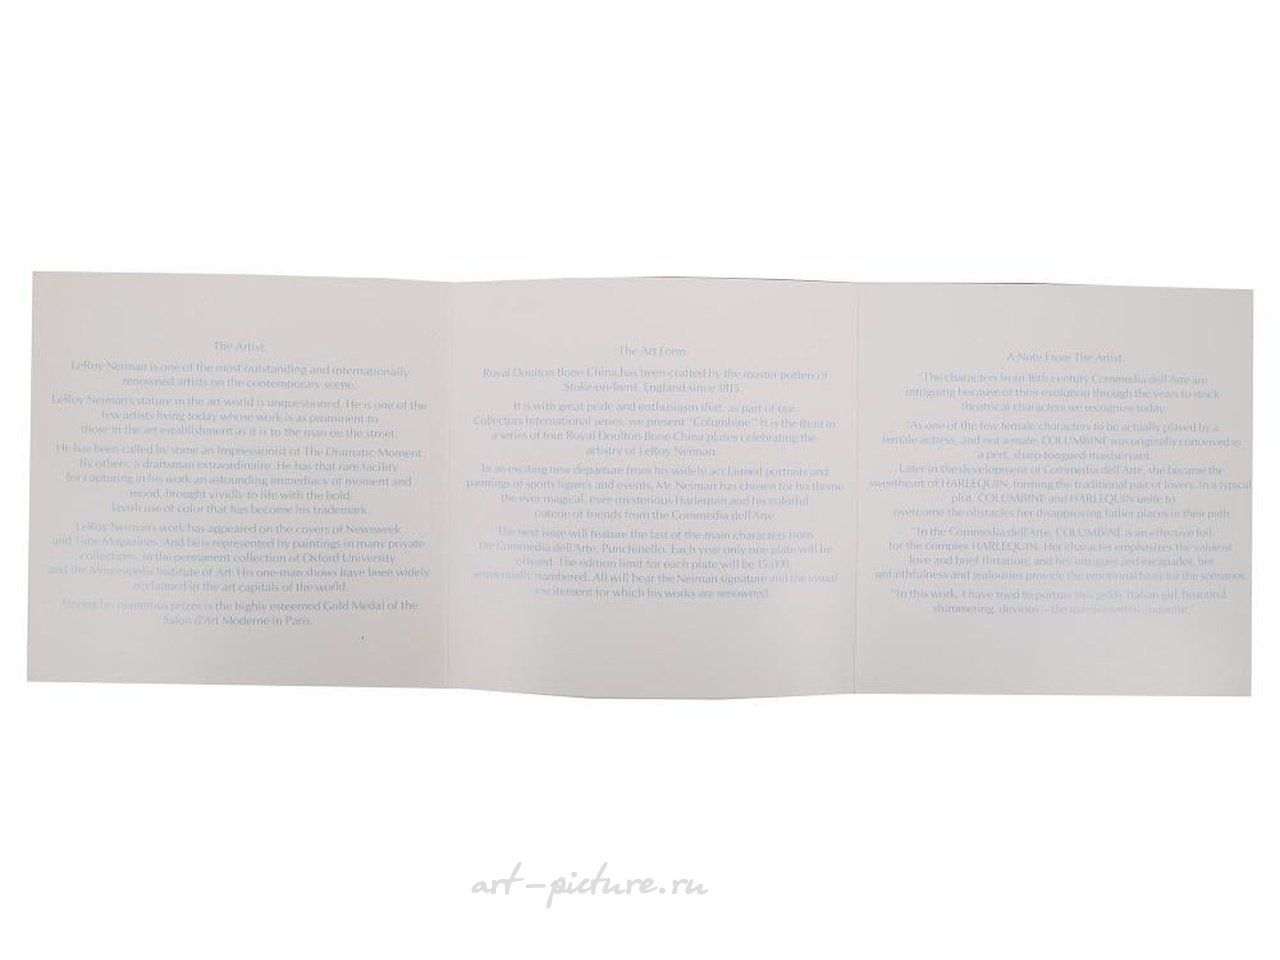 The Artist.
LeRoy Neiman is one of the most outstanding and internationally
renowned artists on the contemporary scene.
LeRoy Neiman's stature in the art world is unquestioned. He is one of the
few artists living today whose work is as prominent to
those in the art establishment as it is to the man on the street.
He has been called by some an Impressionist of The Dramatic Moment.
By others, a draftsman extraordinaire. He has that rare facility
for capturing in his work an astounding immediacy of moment and
mood, brought vividly to life with the bold,
lavish use of color that has become his trademark.
LeRoy Neiman's work has appeared on the covers of Newsweek
and Time Magazines. And he is represented by paintings in many private
collections, in the permanent collection of Oxford University
and the Minneapolis Institute of Art. His one-man shows have been widely
acclaimed in the art capitals of the world.
Among his numerous prizes is the highly esteemed Gold Medal of the
Salon d'Art Moderne in Paris.
The Art Form
Royal Doulton Bone China has been crafted by the master potters of
Stoke-on-Trent, England since 1815.
It is with great pride and enthusiasm that, as part of our
Collectors International series, we present "Columbine." It is the third in
a series of four Royal Doulton Bone China plates celebrating the
artistry of LeRoy Neiman.
In an exciting new departure from his widely acclaimed portraits and
paintings of sports figures and events, Mr. Neiman has chosen for his theme
the ever magical, ever mysterious Harlequin and his colorful
coterie of friends from the Commedia dell'Arte.
The next issue will feature the last of the main characters from
the Commedia dell'Arte, Punchinello. Each year only one plate will be
offered. The edition limit for each plate will be 15,000
sequentially numbered. All will bear the Neiman signature and the visual
excitement for which his works are renowned.
A Note From The Artist.
"The characters from 16th century Commedia dell'Arte are
intriguing because of their evolution through the years to stock
theatrical characters we recognize today.
"As one of the few female characters to be actually played by a
female actress, and not a male, COLUMBINE was originally conceived as
a pert, sharp-tongued maidservant.
Later in the development of Commedia dell'Arte, she became the
sweetheart of HARLEQUIN, forming the traditional pair of lovers. In a typical
plot, COLUMBINE and HARLEQUIN unite to
overcome the obstacles her disapproving father places in their path.
"In the Commedia dell'Arte, COLUMBINE is an effective foil
for the complex HARLEQUIN. Her character emphasizes the value of
love and brief flirtation, and her intrigues and escapades, her
unfaithfulness and jealousies provide the emotional basis for the scenarios.
"In this work, I have tried to portray this giddy Italian girl, beautiful,
shimmering, devious—the quintessential coquette."
art-picture.ru